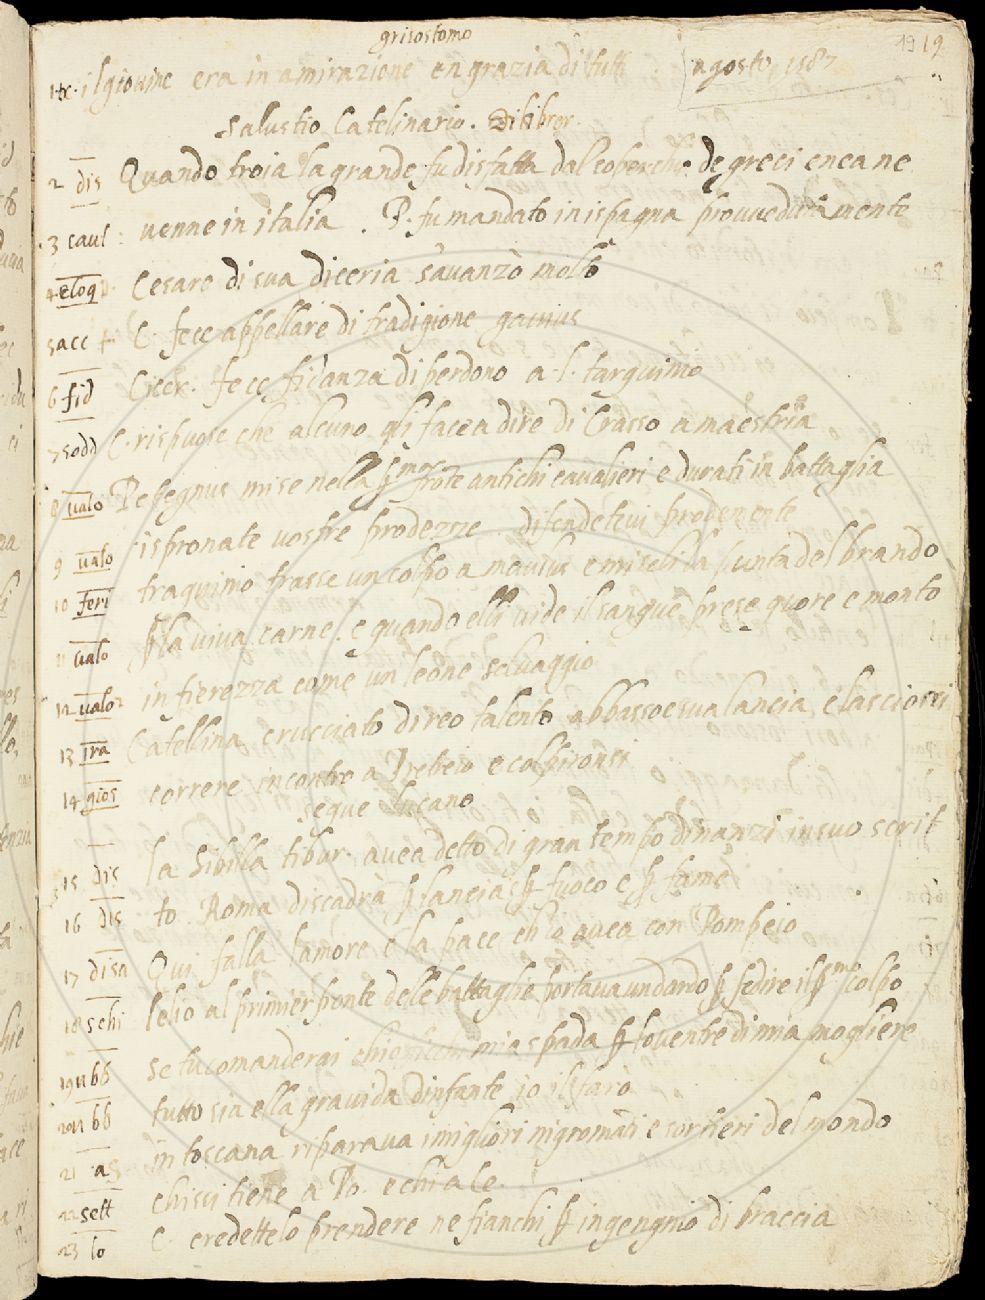 grisostomo
19 19
il giovine era in amirazione en grazia di tutti agosto 1587
Salustio Catelinario. Di libror.
2 dis Quando troia la grande fu disfatta dal soperchio de greci enea ne
3 caul venne in italia. P. fu mandato in ispagna provvedutamente
4 eloq Cesare di sua diceria s'avanzò molto
5 acc + C. fece appellare di tradigione gaius
6 fid Cicer. fece fidanza di perdono a. l. tarquinio
7 sodd C. rispuose che alcuno gli facea dire di Crasso a maestria
8 valo Petegnus mise nella pma frote antichi cavalieri e durati in battaglia
9 valo ispronate vostre prodezze. difendetevi prodemente
10 feri traquinio trasse un colpo a meulus e miseli la punta del brando
11 valo p la viva carne. e quando elli vide il sangue prese quore e monto
12 valor in fierezza come un leone selvaggio
13 ira Catellina crucciato di reo talento abbassoe sua lancia e lasciossi
14 gios correre incontro a Prebeio e colpironsi
segue lucano
15 dis la Sibilla tibur. avea detto di gran tempo dinanzi in suo scrit
16 dis to. Roma discadrà p lancia e p fuoco e p fame
17 disa Qui falla lamore e la pace ch lo avea con Pompeio
18 schi lelio al primier fronte delle battaglie portava un dardo p fedire il pmo colpo
19 ubb se tu comanderai mia spada p lo ventre di mia mogliere
20 ubb tutto sia ella gravida dinfante io il farò
21 as in toscana riparava i migliori nigromati e sortieri del mondo
22 sett chi si tiene a Po. e chi a Ce.
23 lo C. credettelo prendere ne fianchi p ingengnio di braccia